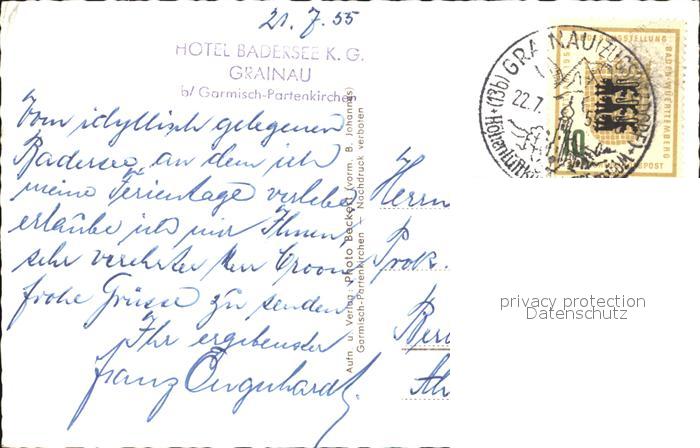 21.7.55
HOTEL BADERSEE K. G.
GRAINAU
b/ Garmisch-Partenkirchen
Vom idyllisch gelegenen
Badersee, an dem ich
meine Ferientage verlebe
erlaube ich mir Ihnen,
sehr verehrter Herr Croon
frohe Grüsse zu senden
Ihr ergebenster
Franz Engenhardt.
Aufn. u. Verlag: Photo Beckert (vorm. B. Johannes)
Garmisch-Partenkirchen — Nachdruck verboten
Herrn
Prok.
(13b) GRAINAU (ZUGSPITZDORF)
22.7.55
AUSSTELLUNG
BADEN-WUERTTEMBERG
10
privacy protection
Datenschutz